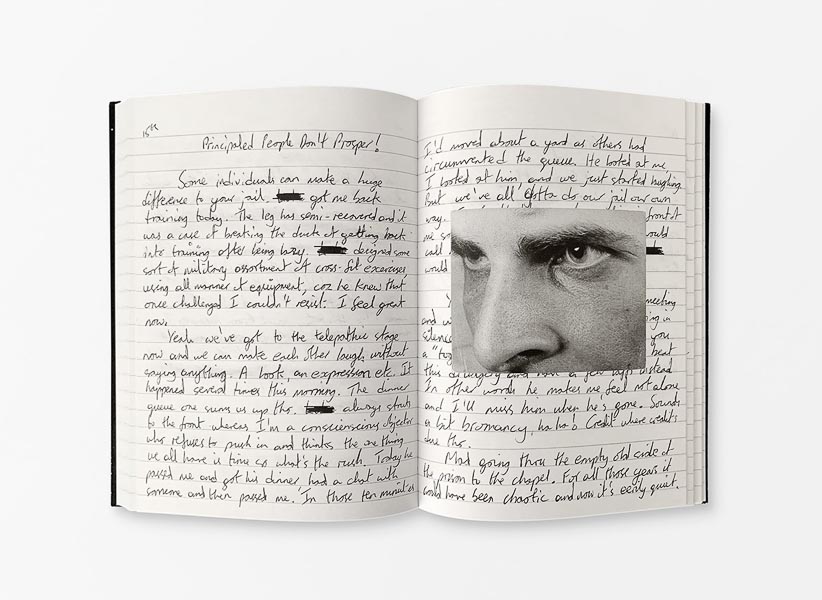 15th
Principaled People Don't Prosper!
Some individuals can make a huge
difference to your jail. got me back
training today. The leg has semi-recovered and it
was a case of breaking the duck of getting back
into training after being lazy. designed some
sort of military assortment of cross-fit exercises,
using all manner of equipment, coz he knew that
once challenged I couldn't resist. I feel great
now.
Yeah we've got to the telepathic stage
now and we can make each other laugh without
saying anything. A look, an expression etc. It
happened several times this morning. The dinner
queue one sums us up tho. always struts
to the front whereas I'm a conscienscious objector
who refuses to push in and thinks the one thing
we all have is time so what's the rush. Today he
passed me and got his dinner, had a chat with
someone and then passed me. In those ten minutes
I'd moved about a yard as others had
circumvented the queue. He looked at me
I looked at him, and we just started laughing
but we've all gotta do our jail our own
way. front of
me
call
would
meeting
and
silence you
a beat
this and have a few laughs instead
In other words he makes me feel not alone
and I'll miss him when he's gone. Sounds
a bit bromancy, ha ha! Credit where credit's
due tho.
Mad going thru the empty old side of
the prison to the chapel. For all those years it
would have been chaotic and now it's eerily quiet.